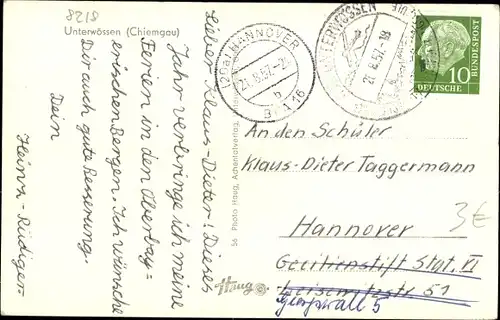 8218
Unterwössen (Chiemgau)
Lieber Klaus-Dieter! Dieses
Jahr verbringe ich meine
Ferien in den Oberbay=
erischen Bergen. Ich wünsche
Dir auch gute Besserung.
Dein
Heinz-Rüdiger
56 Photo Haug,
Haug
HANNOVER
21.8.57.-21
b
3 116
UNTERWÖSSEN
21.8.57.-18
DEUTSCHE
BUNDESPOST
10
An den Schüler
Klaus-Dieter Taggermann
Hannover
3€
Cecilienstift Stat. VI
51
5